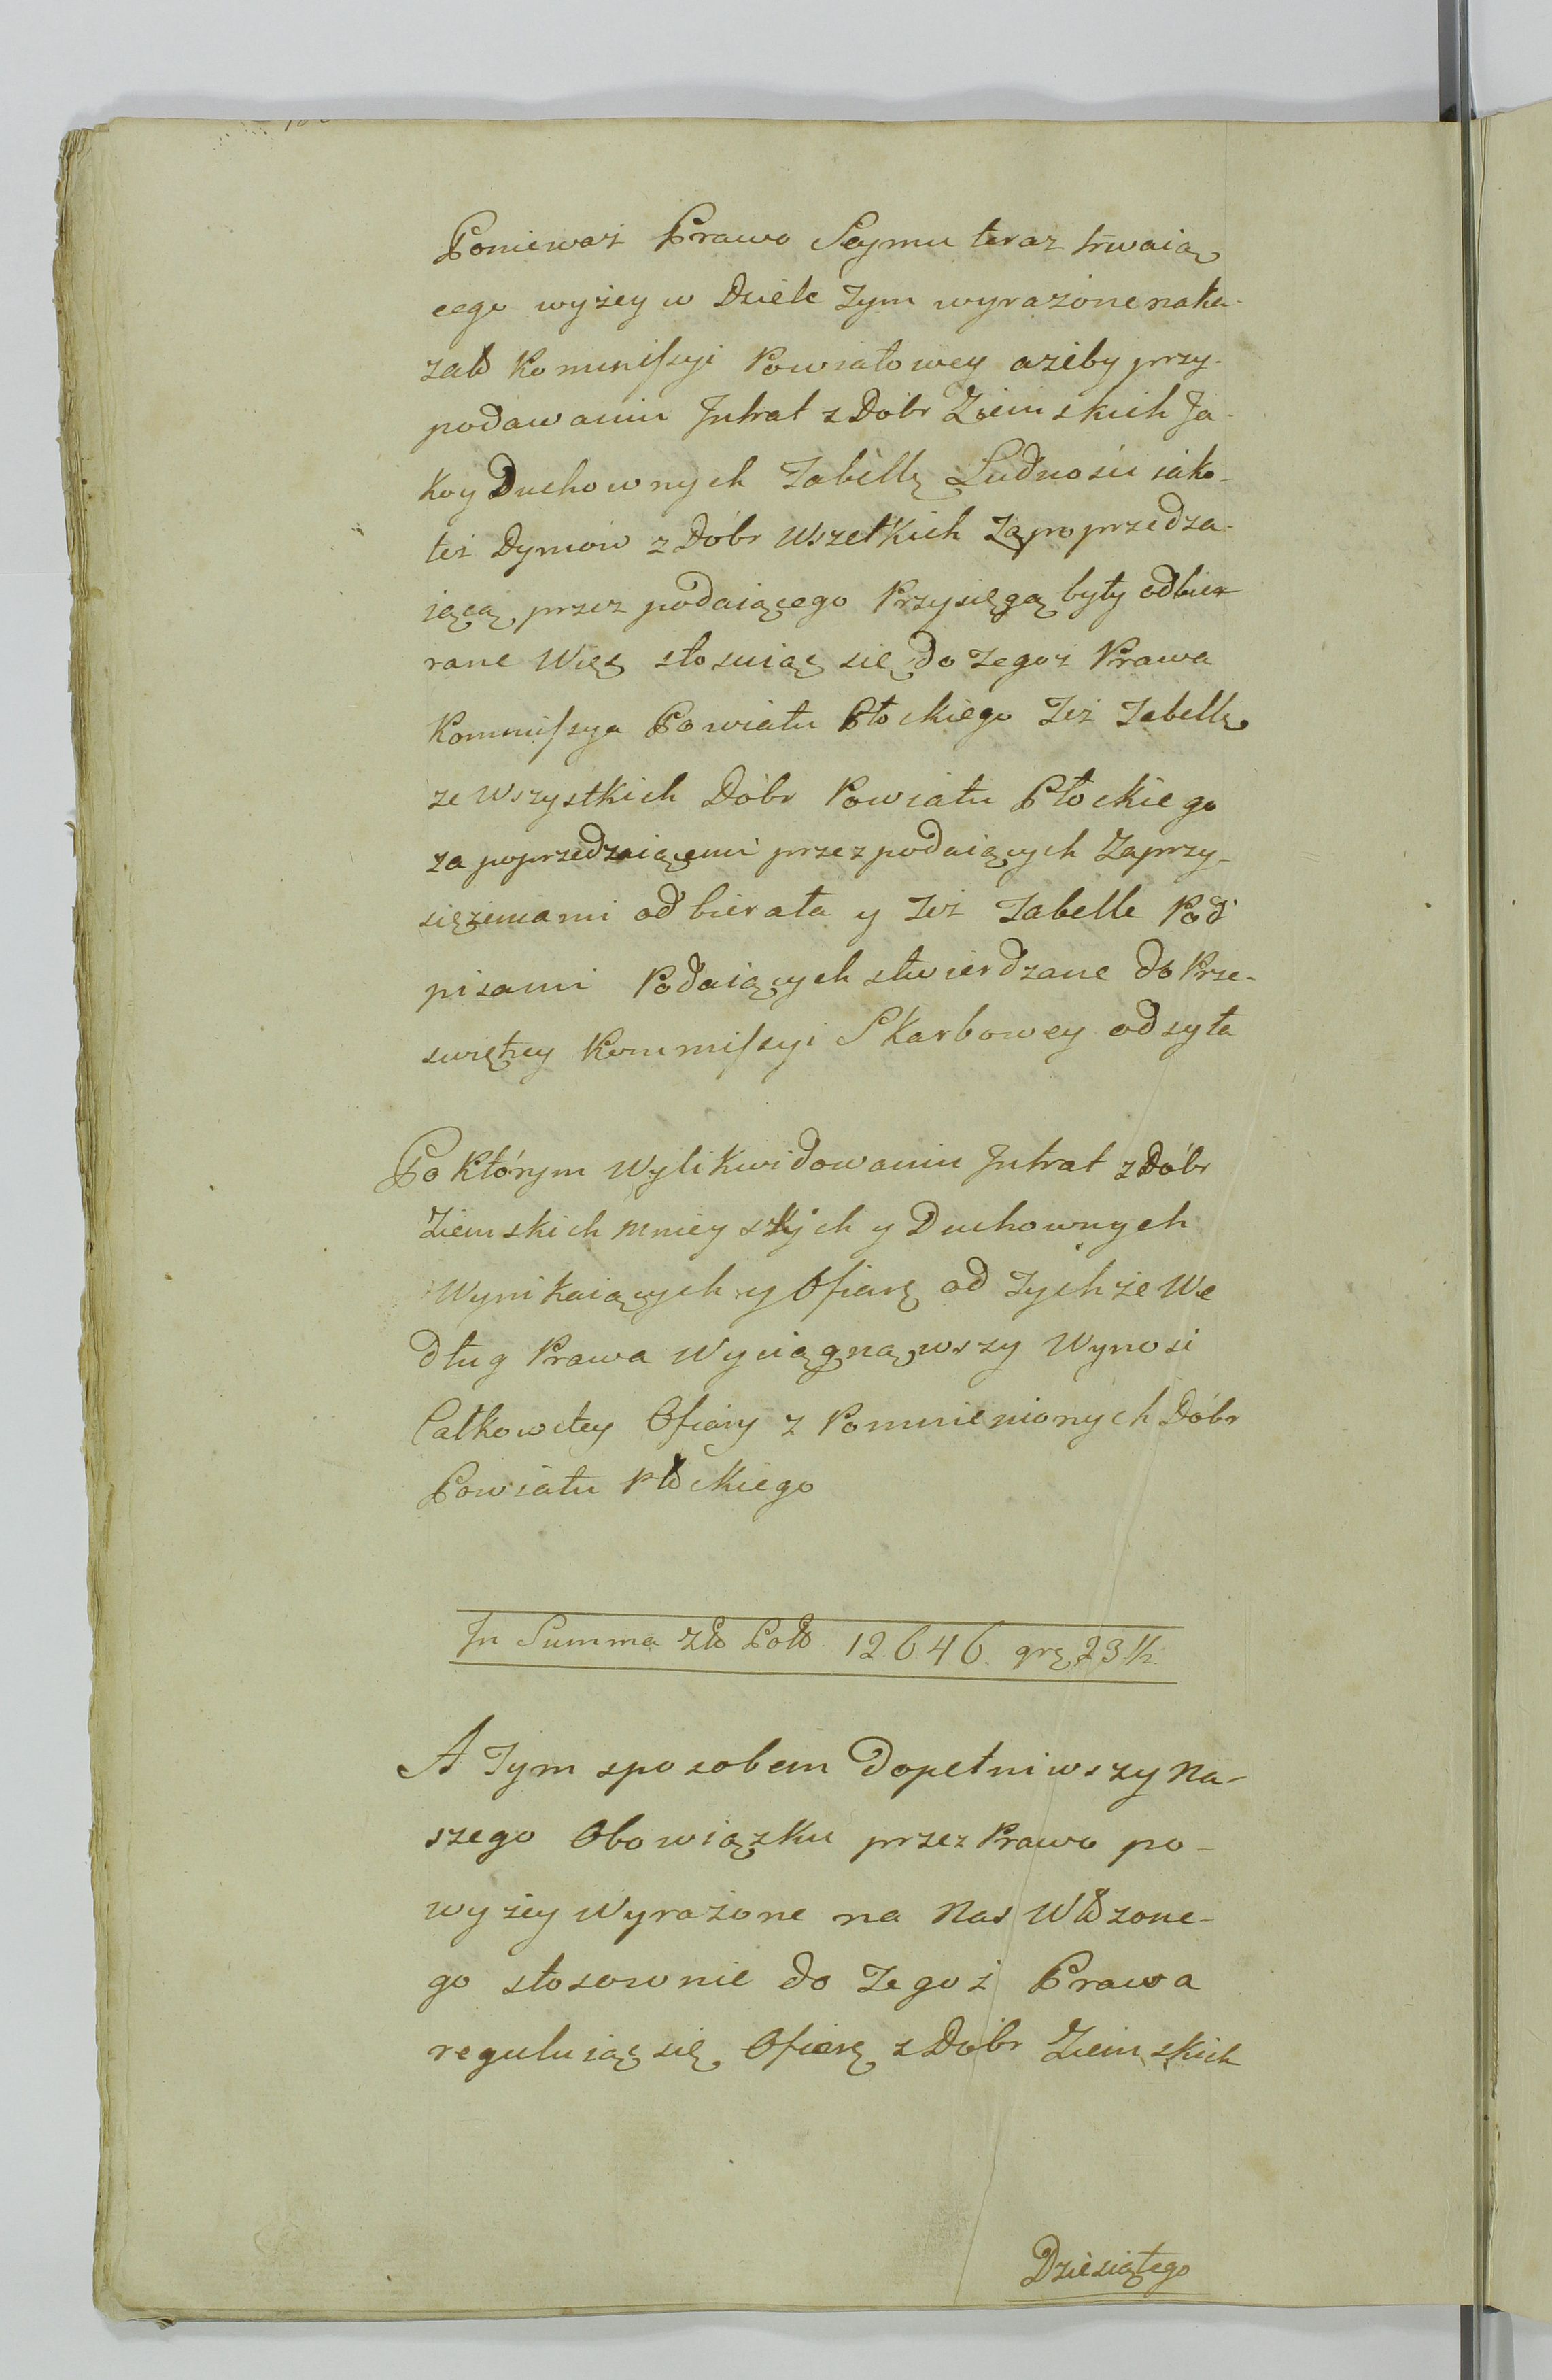 Ponieważ Prawo Seymu teraz trwaią
cego wyżey w Dziele Tym wyrażone naka-
zało Kommissyi Powiatowey ażeby przy-
podawaniu Intrat z Dóbr Ziemskich Ja-
ko y Duchownych Tabellę Ludności iako-
też Dymów z Dóbr Wszelkich Zapoprzedza-
iącą przez podaiącego Przysięgą były odbier
rane Więc stosuiąc się do Tegoż Prawa
Kommissya Powiatu Płockiego Też Tabellę
ze Wszystkich Dóbr Powiatu Płockiego
za poprzedzaiącemi przez podaiących Zaprzy-
siężeniami odbierała y Też Tabelle Pod
pisami Podaiących stwierdzane do Prze-
swiętney Kommissyi Skarbowey odsyła
Po Którym Wylikwidowaniu Intrat z Dóbr
Ziemskich Mnieyszych y Duchownych
Wynikaiących y Ofiarę od Tychże We
dług Prawa Wyciągnąwszy Wynosi
Całkowitey Ofiary z Pommienionych Dóbr
Powiatu Płockiego
In Summa Zło Pol 12.646. grę 23 ½.
A Tym sposobem Dopełniwszy Na-
szego Obowiązku przez Prawo po-
wyżey Wyrażone na Nas Włożone-
go stosownie do Tegoż Prawa
reguluiąc się Ofiarę z Dóbr Ziemskich
Dziesiątego